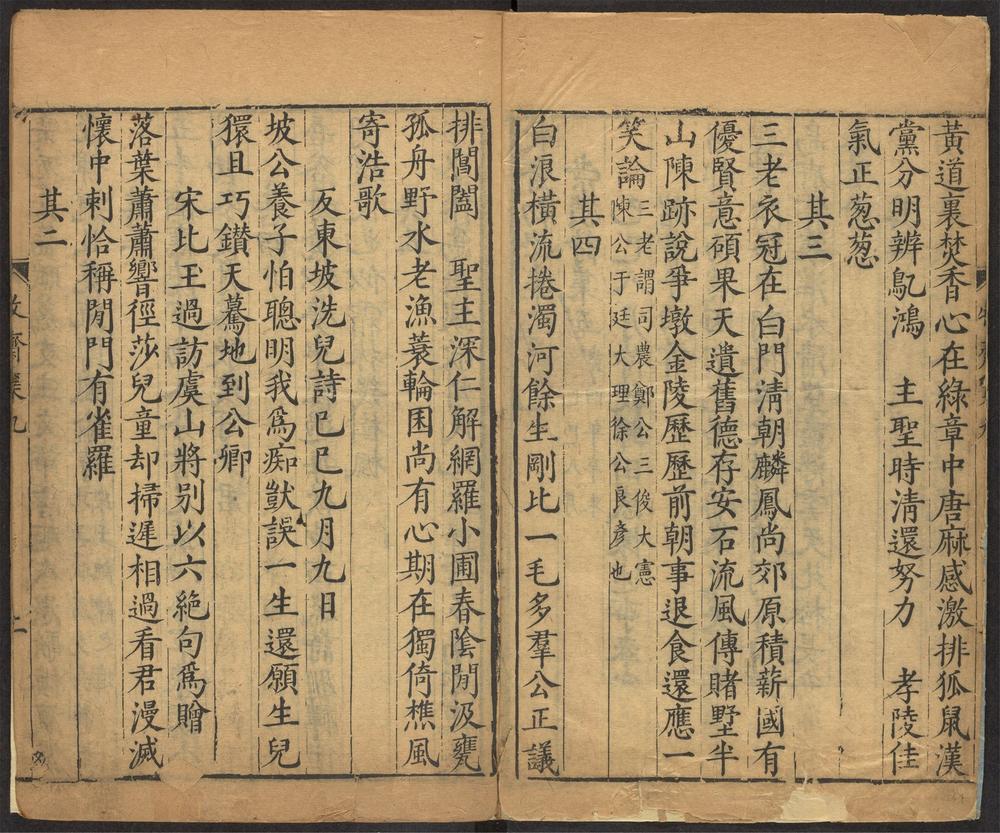 黃道裏焚香心在綠章中唐麻感激排狐鼠漢
黨分明辨鳧鴻　主聖時清還努力　孝陵佳
氣正葱葱
其三
三老衣冠在白門清朝麟鳳尚郊原積薪國有
優賢意碩果天遺舊德存安石流風傳賭墅半
山陳跡說爭墩金陵歷歷前朝事退食還應一
笑論三老謂司農鄭公三俊大憲
陳公于廷大理徐公良彥也
其四
白浪橫流捲濁河餘生剛比一毛多羣公正議
排閶闔　聖主深仁解網羅小圃春陰閒汲甕
孤舟野水老漁蓑輪囷尚有心期在獨倚樵風
寄浩歌
反東坡洗兒詩已巳九月九日
坡公養子怕聰明我爲痴獃誤一生還願生兒
獧且巧鑚天驀地到公卿
宋比玉過訪虞山將別以六絕句爲贈
落葉蕭蕭響徑莎兒童却掃遲相過看君漫滅
懷中刺恰稱閒門有雀羅
其二
牧齋集九